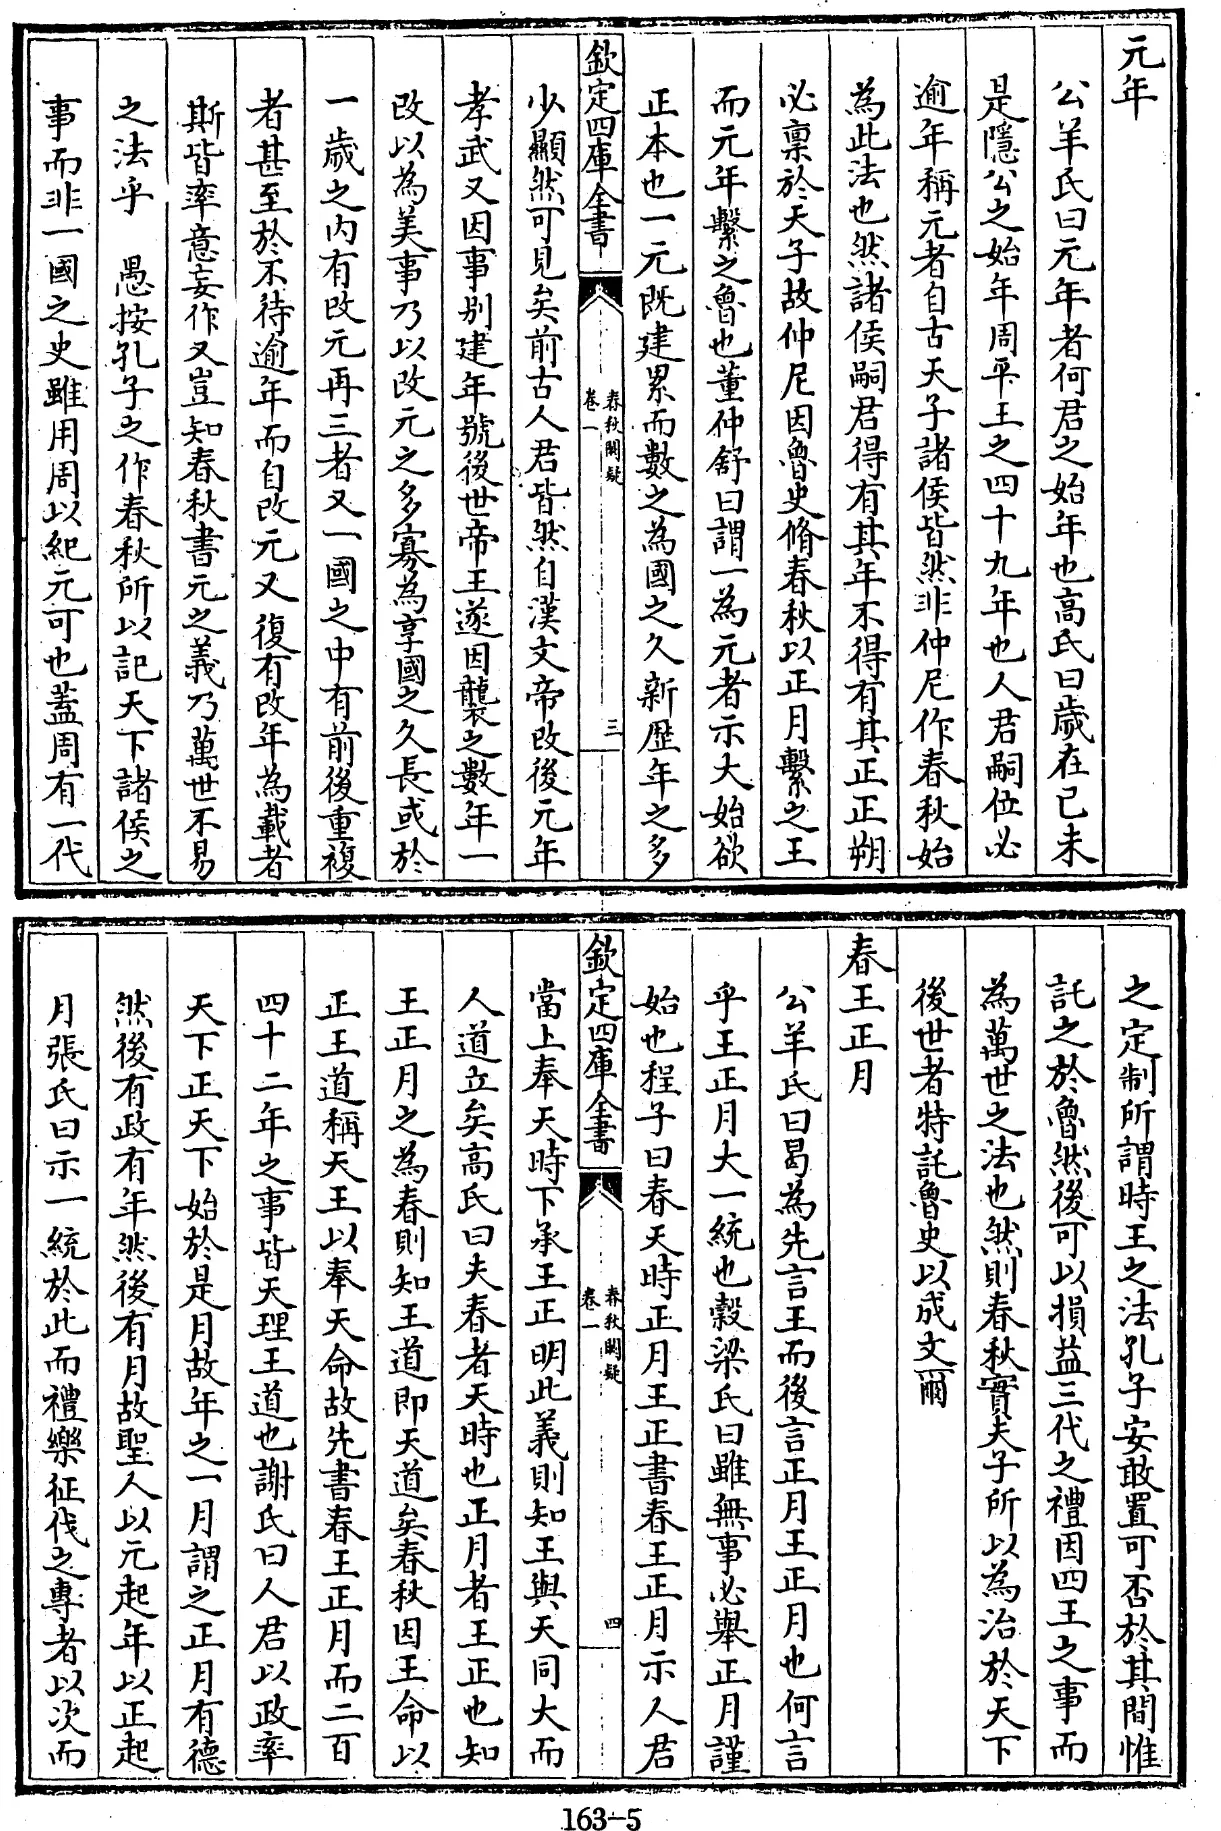 元年
公羊氏曰元年者何君之始年也高氏曰歲在己未
是隱公之始年周平王之四十九年也人君嗣位必
逾年稱元者自古天子諸侯皆然非仲尼作春秋始
為此法也然諸侯嗣君得有其年不得有其正正朔
必稟於天子故仲尼因魯史脩春秋以正月繫之王
而元年繫之魯也董仲舒曰謂一為元者示大始欲
正本也一元既建累而數之為國之久新歷年之多
欽定四庫全書
春秋闕疑
卷一
三
少顯然可見矣前古人君皆然自漢文帝改後元年
孝武又因事別建年號後世帝王遂因襲之數年一
改以為美事乃以改元之多寡為享國之久長或於
一歲之內有改元再三者又一國之中有前後重複
者甚至於不待逾年而自改元又復有改年為載者
斯皆率意妄作又豈知春秋書元之義乃萬世不易
之法乎　愚按孔子之作春秋所以記天下諸侯之
事而非一國之史雖用周以紀元可也蓋周有一代
之定制所謂時王之法孔子安敢置可否於其間惟
託之於魯然後可以損益三代之禮因四王之事而
為萬世之法也然則春秋實夫子所以為治於天下
後世者特託魯史以成文爾
春王正月
公羊氏曰曷為先言王而後言正月王正月也何言
乎王正月大一統也穀梁氏曰雖無事必舉正月謹
始也程子曰春天時正月王正書春王正月示人君
欽定四庫全書
春秋闕疑
卷一
四
當上奉天時下承王正明此義則知王與天同大而
人道立矣高氏曰夫春者天時也正月者王正也知
王正月之為春則知王道即天道矣春秋因王命以
正王道稱天王以奉天命故先書春王正月而二百
四十二年之事皆天理王道也謝氏曰人君以政率
天下正天下始於是月故年之一月謂之正月有德
然後有政有年然後有月故聖人以元起年以正起
月張氏曰示一統於此而禮樂征伐之專者以次而
163-5